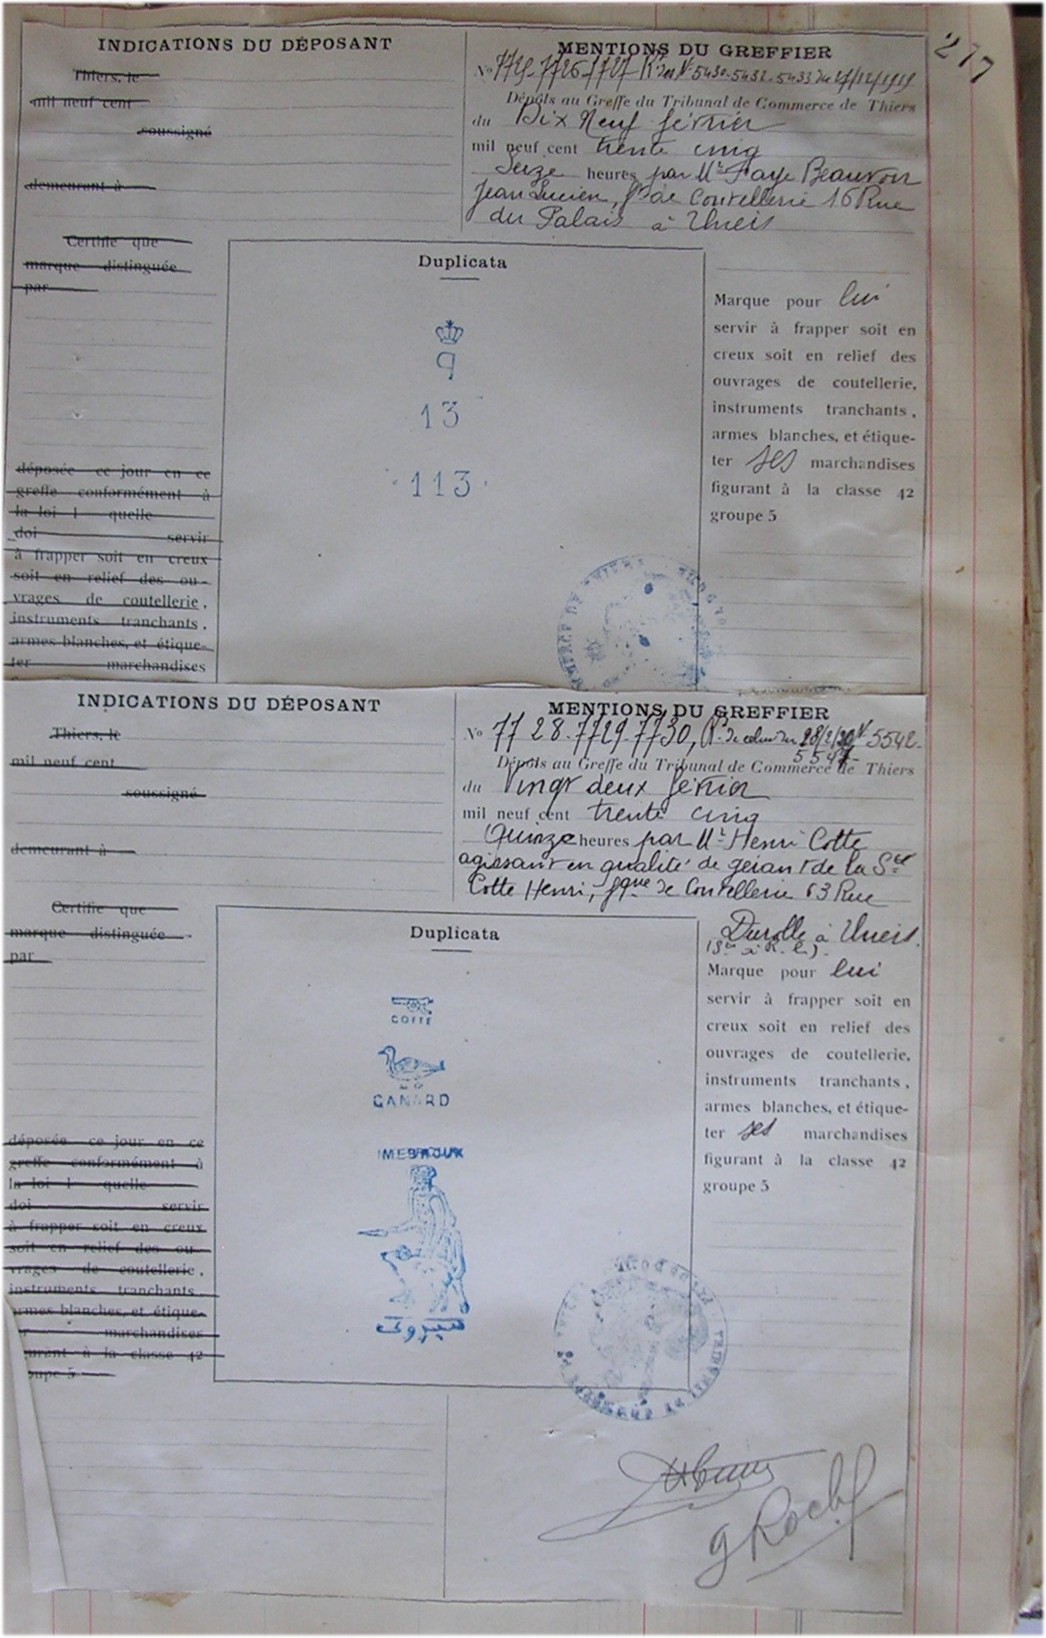 277
INDICATIONS DU DÉPOSANT
Thiers, le
mil neuf cent
soussigné
demeurant à
Certifie que
marque distinguée
par
déposée ce jour en ce
greffe conformément à
la loi l quelle
doi servir
à frapper soit en creux
soit en relief des ou-
vrages de coutellerie,
instruments tranchants,
armes blanches, et étique-
ter marchandises
MENTIONS DU GREFFIER
No 7725-7726-7727 Rt des No 5430-5432-5433 du 27/12/1919
Dépôts au Greffe du Tribunal de Commerce de Thiers
du Dix Neuf février
mil neuf cent trente cinq
Seize heures par Mr Faye Beauvoir
Jean Lucien, ft de Coutellerie 16 Rue
du Palais à Thiers
Duplicata
9
13
113
Marque pour lui
servir à frapper soit en
creux soit en relief des
ouvrages de coutellerie,
instruments tranchants,
armes blanches, et étique-
ter ses marchandises
figurant à la classe 42
groupe 5
INDICATIONS DU DÉPOSANT
Thiers, le
mil neuf cent
soussigné
demeurant à
Certifie que
marque distinguée
par
déposée ce jour en ce
greffe conformément à
la loi l quelle
doi servir
à frapper soit en creux
soit en relief des ou-
vrages de coutellerie,
instruments tranchants,
armes blanches, et étique-
marchandises
à la classe 42
MENTIONS DU GREFFIER
No 7728-7729-7730, 5542-
Dépôts au Greffe du Tribunal de Commerce de Thiers
du Vingt deux février
mil neuf cent trente cinq
Quinze heures par Mr Henri Cotte
agissant en qualité de gérant de la Sté
Cotte Henri, fque de Coutellerie 63 Rue
Durolle à Thiers.
(Sté à R. L.)
Duplicata
COTTE
CANARD
Marque pour lui
servir à frapper soit en
creux soit en relief des
ouvrages de coutellerie,
instruments tranchants,
armes blanches, et étique-
ter ses marchandises
figurant à la classe 42
groupe 5